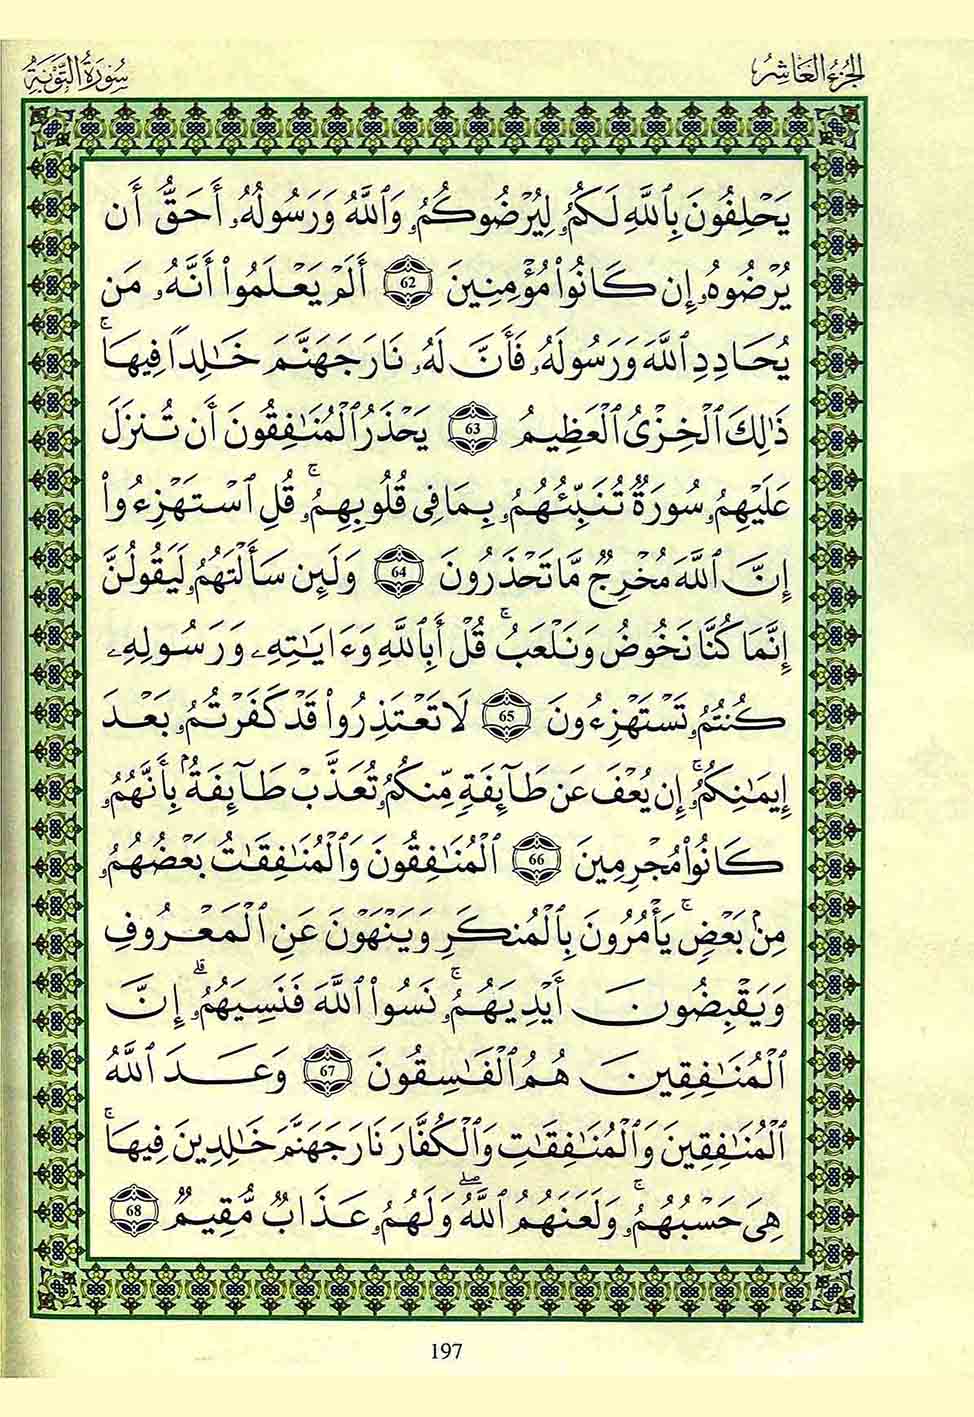 الجزء العاشر
سورة التوبة
يَحْلِفُونَ بِاللَّهِ لَكُمُۥ لِيُرْضُوكُمُۥ وَاللَّهُ وَرَسُولُهُۥ أَحَقُّ أَن
يُرْضُوهُۥ إِن كَانُوا۟ مُؤْمِنِينَ 62 أَلَمْ يَعْلَمُوا۟ أَنَّهُۥ مَن
يُحَادِدِ ٱللَّهَ وَرَسُولَهُۥ فَأَنَّ لَهُۥ نَارَ جَهَنَّمَ خَٰلِدًا فِيهَاۚ
ذَٰلِكَ ٱلْخِزْىُ ٱلْعَظِيمُ 63 يَحْذَرُ ٱلْمُنَٰفِقُونَ أَن تُنزَلَ
عَلَيْهِمُۥ سُورَةٌ تُنَبِّئُهُمُۥ بِمَا فِى قُلُوبِهِمُۥۚ قُلِ ٱسْتَهْزِءُوا۟
إِنَّ ٱللَّهَ مُخْرِجٌ مَّا تَحْذَرُونَ 64 وَلَئِن سَأَلْتَهُمُۥ لَيَقُولُنَّ
إِنَّمَا كُنَّا نَخُوضُ وَنَلْعَبُۚ قُلْ أَبِاللَّهِ وَءَايَٰتِهِۦ وَرَسُولِهِۦ
كُنتُمُۥ تَسْتَهْزِءُونَ 65 لَا تَعْتَذِرُوا۟ قَدْ كَفَرْتُمُۥ بَعْدَ
إِيمَٰنِكُمُۥۚ إِن يُعْفَ عَن طَآئِفَةٍ مِّنكُمُۥ تُعَذَّبْ طَآئِفَةُۢ بِأَنَّهُمُۥ
كَانُوا۟ مُجْرِمِينَ 66 ٱلْمُنَٰفِقُونَ وَٱلْمُنَٰفِقَٰتُ بَعْضُهُمُۥ
مِنۢ بَعْضٍۚ يَأْمُرُونَ بِٱلْمُنكَرِ وَيَنْهَوْنَ عَنِ ٱلْمَعْرُوفِ
وَيَقْبِضُونَ أَيْدِيَهُمُۥۚ نَسُوا۟ ٱللَّهَ فَنَسِيَهُمُۥۗ إِنَّ
ٱلْمُنَٰفِقِينَ هُمُ ٱلْفَٰسِقُونَ 67 وَعَدَ ٱللَّهُ
ٱلْمُنَٰفِقِينَ وَٱلْمُنَٰفِقَٰتِ وَٱلْكُفَّارَ نَارَ جَهَنَّمَ خَٰلِدِينَ فِيهَاۚ
هِىَ حَسْبُهُمُۥۚ وَلَعَنَهُمُ ٱللَّهُۖ وَلَهُمُۥ عَذَابٌ مُّقِيمٌ 68
197